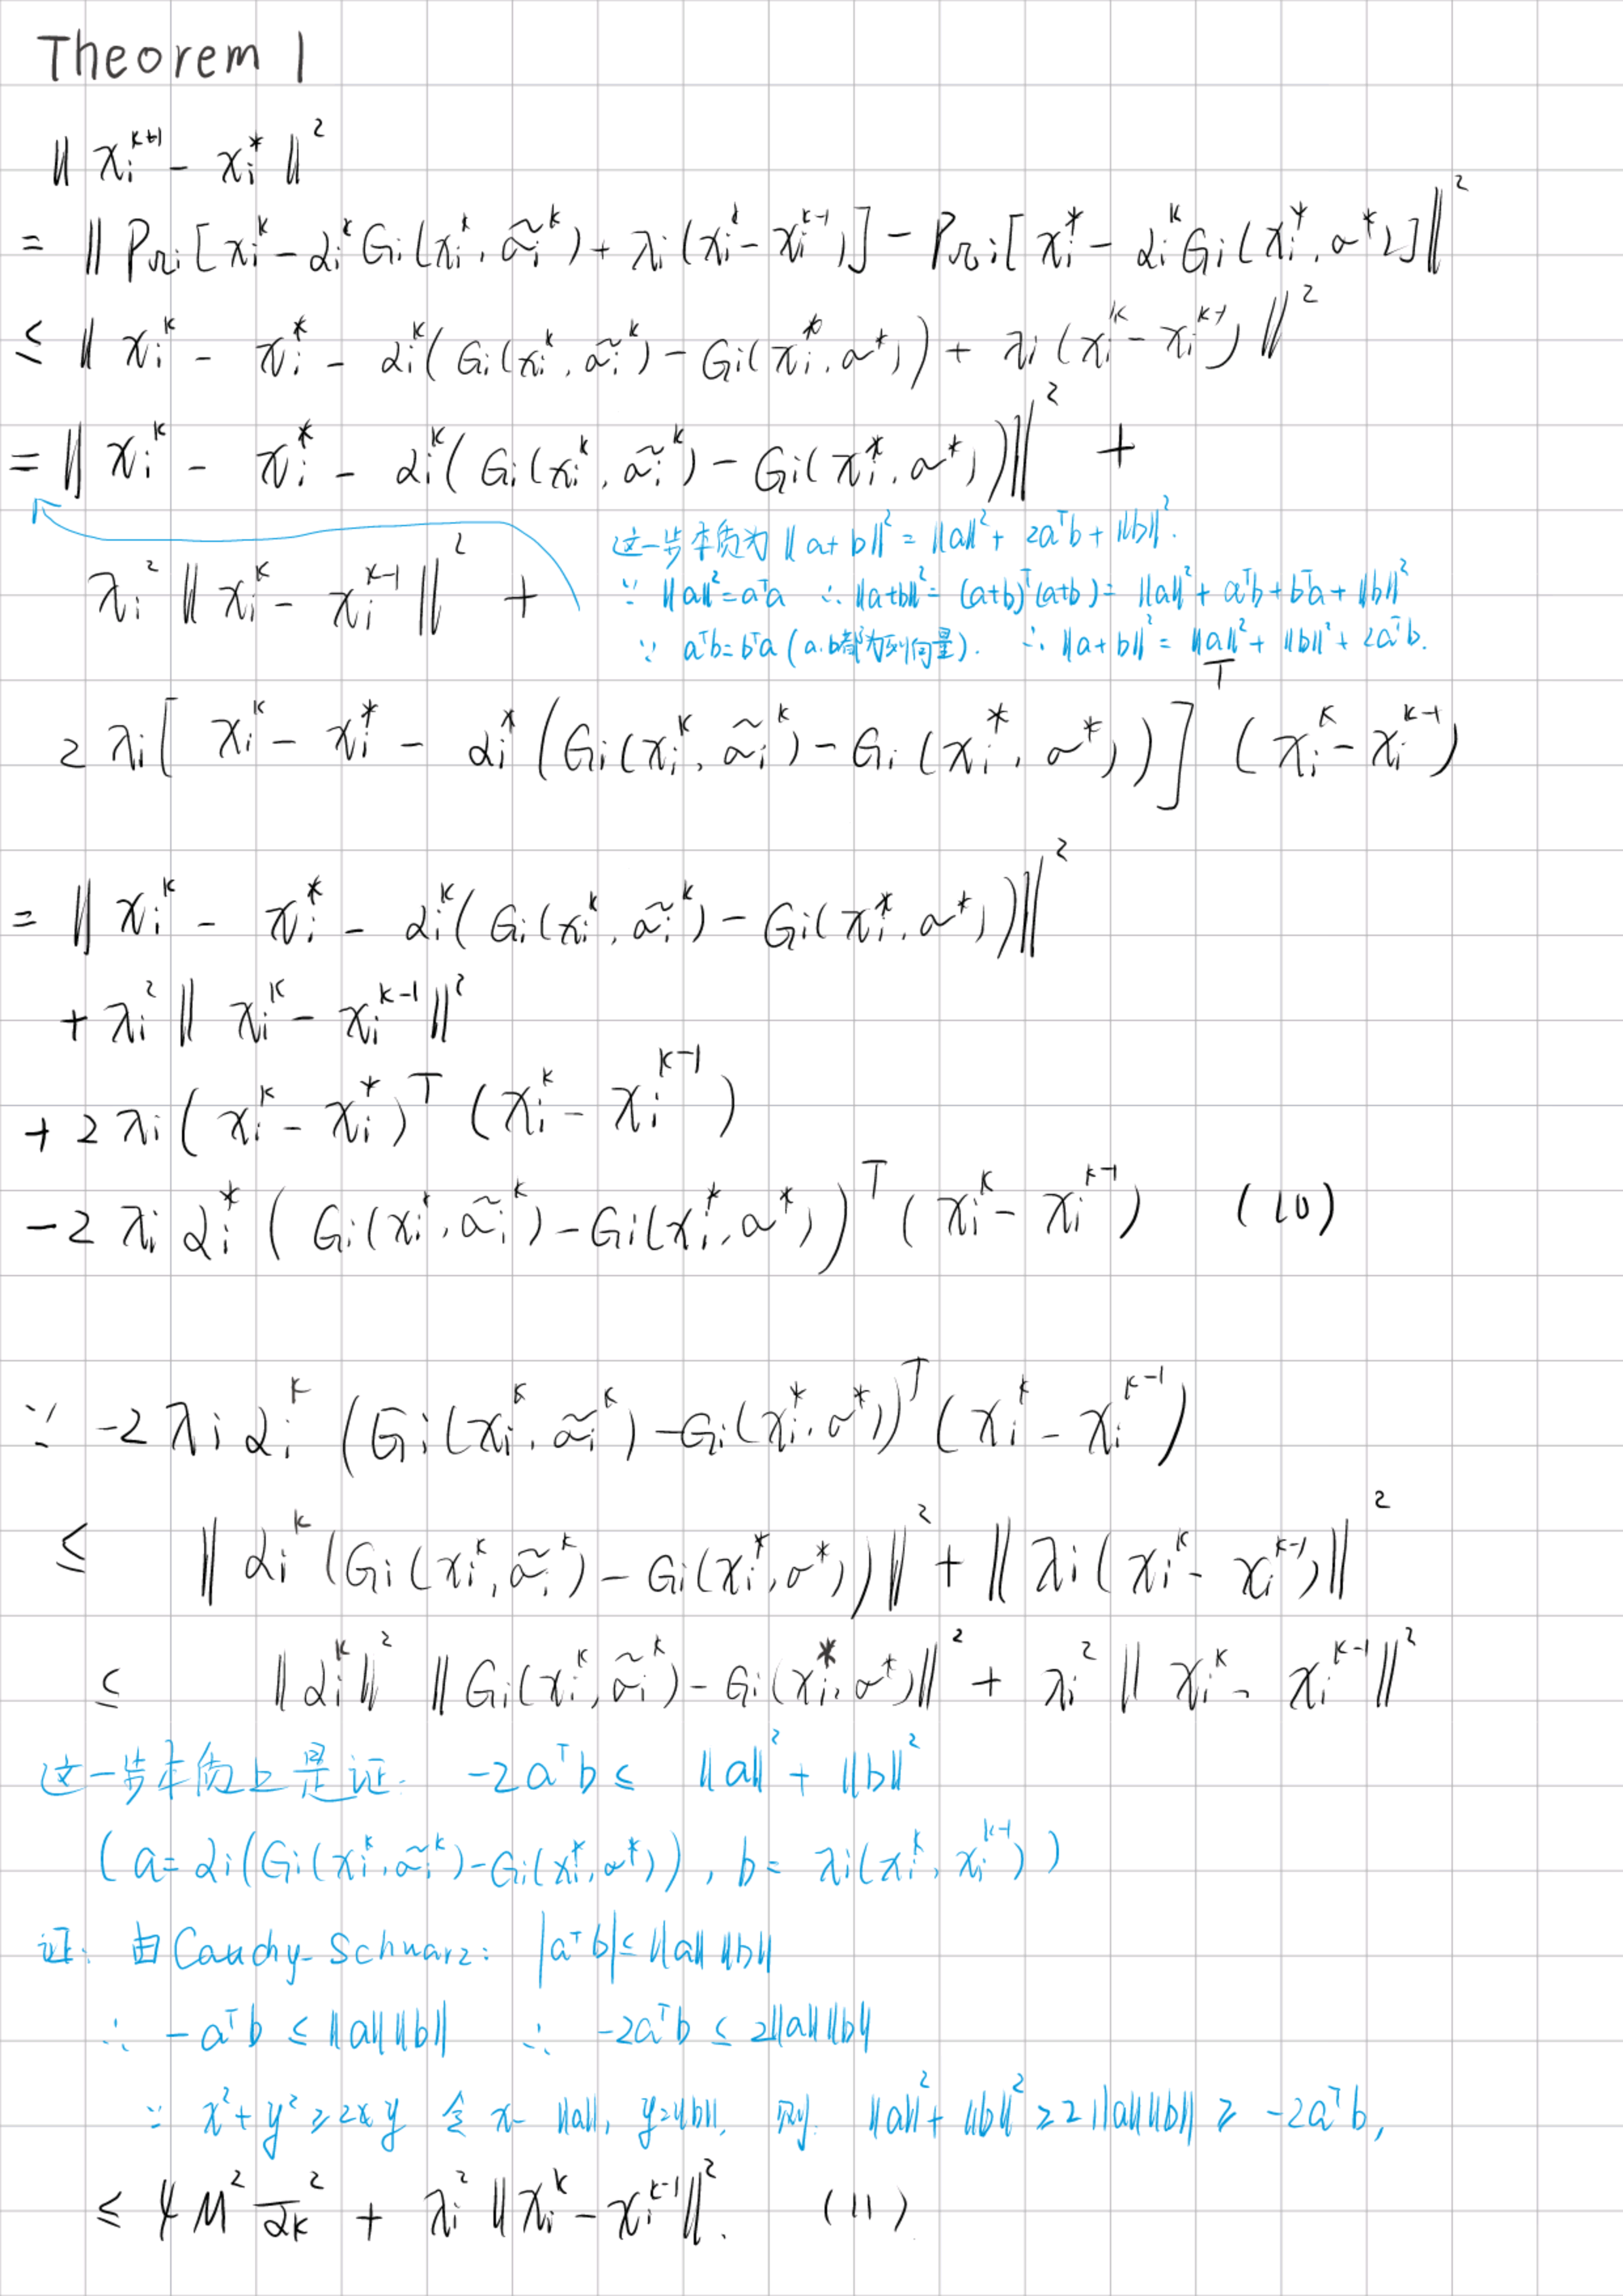 Theorem 1
‖ x_i^{k+1} - x_i^* ‖^2
= ‖ P_{Ωi}[x_i^k - α_i^k G_i(x_i^k, \tilde{σ}_i^k) + λ_i(x_i^k - x_i^{k-1})] - P_{Ωi}[x_i^* - α_i^k G_i(x_i^*, σ^*)] ‖^2
≤ ‖ x_i^k - x_i^* - α_i^k(G_i(x_i^k, \tilde{σ}_i^k) - G_i(x_i^*, σ^*)) + λ_i(x_i^k - x_i^{k-1}) ‖^2
= ‖ x_i^k - x_i^* - α_i^k(G_i(x_i^k, \tilde{σ}_i^k) - G_i(x_i^*, σ^*)) ‖^2 +
这一步本质为 ‖a+b‖^2 = ‖a‖^2 + 2a^Tb + ‖b‖^2.
λ_i^2 ‖ x_i^k - x_i^{k-1} ‖^2 +
∵ ‖a‖^2 = a^Ta ∴ ‖a+b‖^2 = (a+b)^T(a+b) = ‖a‖^2 + a^Tb + b^Ta + ‖b‖^2
∵ a^Tb = b^Ta (a.b都为列向量). ∴ ‖a+b‖^2 = ‖a‖^2 + ‖b‖^2 + 2a^Tb.
2 λ_i [ x_i^k - x_i^* - α_i^* (G_i(x_i^k, \tilde{σ}_i^k) - G_i(x_i^*, σ^*)) ]^T (x_i^k - x_i^{k-1})
= ‖ x_i^k - x_i^* - α_i^k(G_i(x_i^k, \tilde{σ}_i^k) - G_i(x_i^*, σ^*)) ‖^2
+ λ_i^2 ‖ x_i^k - x_i^{k-1} ‖^2
+ 2 λ_i (x_i^k - x_i^*)^T (x_i^k - x_i^{k-1})
- 2 λ_i α_i^* (G_i(x_i^k, \tilde{σ}_i^k) - G_i(x_i^*, σ^*))^T (x_i^k - x_i^{k-1}) (10)
∵ -2 λ_i α_i^k (G_i(x_i^k, \tilde{σ}_i^k) - G_i(x_i^*, σ^*))^T (x_i^k - x_i^{k-1})
≤ ‖ α_i^k (G_i(x_i^k, \tilde{σ}_i^k) - G_i(x_i^*, σ^*)) ‖^2 + ‖ λ_i (x_i^k - x_i^{k-1}) ‖^2
≤ ‖ α_i^k ‖^2 ‖ G_i(x_i^k, \tilde{σ}_i^k) - G_i(x_i^*, σ^*) ‖^2 + λ_i^2 ‖ x_i^k - x_i^{k-1} ‖^2
这一步本质上是证: -2a^Tb ≤ ‖a‖^2 + ‖b‖^2
(a = α_i(G_i(x_i^k, \tilde{σ}_i^k) - G_i(x_i^*, σ^*)), b = λ_i(x_i^k, x_i^{k-1}))
证: 由 Cauchy-Schwarz: |a^Tb| ≤ ‖a‖ ‖b‖
∴ -a^Tb ≤ ‖a‖ ‖b‖ ∴ -2a^Tb ≤ 2‖a‖ ‖b‖
∵ x^2 + y^2 ≥ 2xy 令 x = ‖a‖, y = ‖b‖, 则. ‖a‖^2 + ‖b‖^2 ≥ 2‖a‖‖b‖ ≥ -2a^Tb,
≤ 4M^2 \overline{α}_k^2 + λ_i^2 ‖ x_i^k - x_i^{k-1} ‖^2. (11)